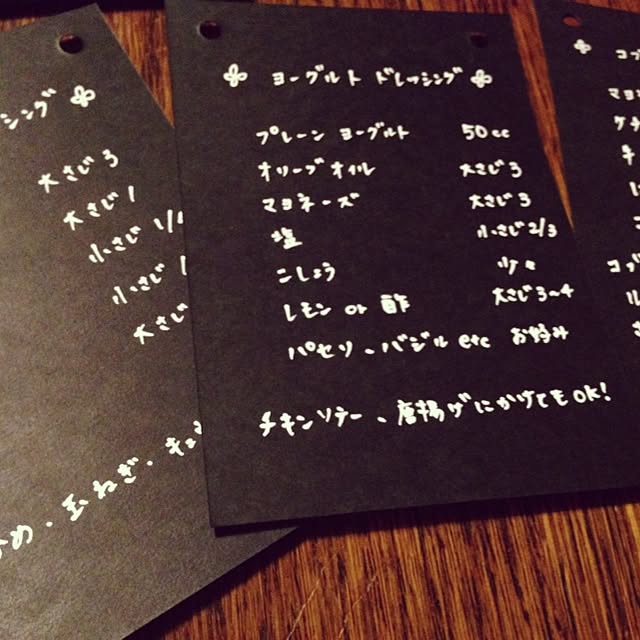 シング
大さじ3
大さじ1
小さじ
小さじ
大さじ
め・玉ねぎ・キュ
ヨーグルト ドレッシング
プレーン ヨーグルト 50cc
オリーブオイル 大さじ3
マヨネーズ 大さじ3
塩 小さじ2/3
こしょう 少々
レモン or 酢 大さじ3〜4
パセリ、バジル etc お好み
チキンソテー、唐揚げにかけてもOK!
コッ
マヨ
ケチ
コッ